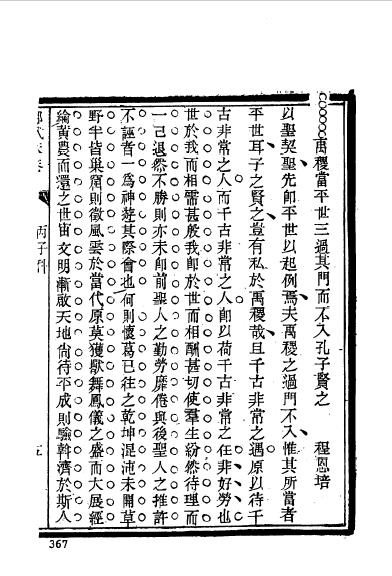 禹稷當平世三過其門而不入孔子賢之 程恩培
以聖契聖先即平世以起例焉夫禹稷之過門不入惟其所當者
平世耳子之賢之豈有私於禹稷哉且千古非常之遇原以待千
古非常之人而千古非常之人即以荷千古非常之任非好勞也
世於我而相需甚殷我即於世而相酬甚切使羣生紛然待理而
一己退然不勝則亦未卽前聖人之勤勞靡倦與後聖人之推許
不誣者一爲神遊其際會也何則懷葛已往之乾坤混沌未開草
野半皆巢窟則徵風雲於當代原莫獲獸舞鳳儀之盛而大展經
綸黃農而還之世宙文明漸啟天地尚待平成則驗斡濟於斯人
丙子科
367